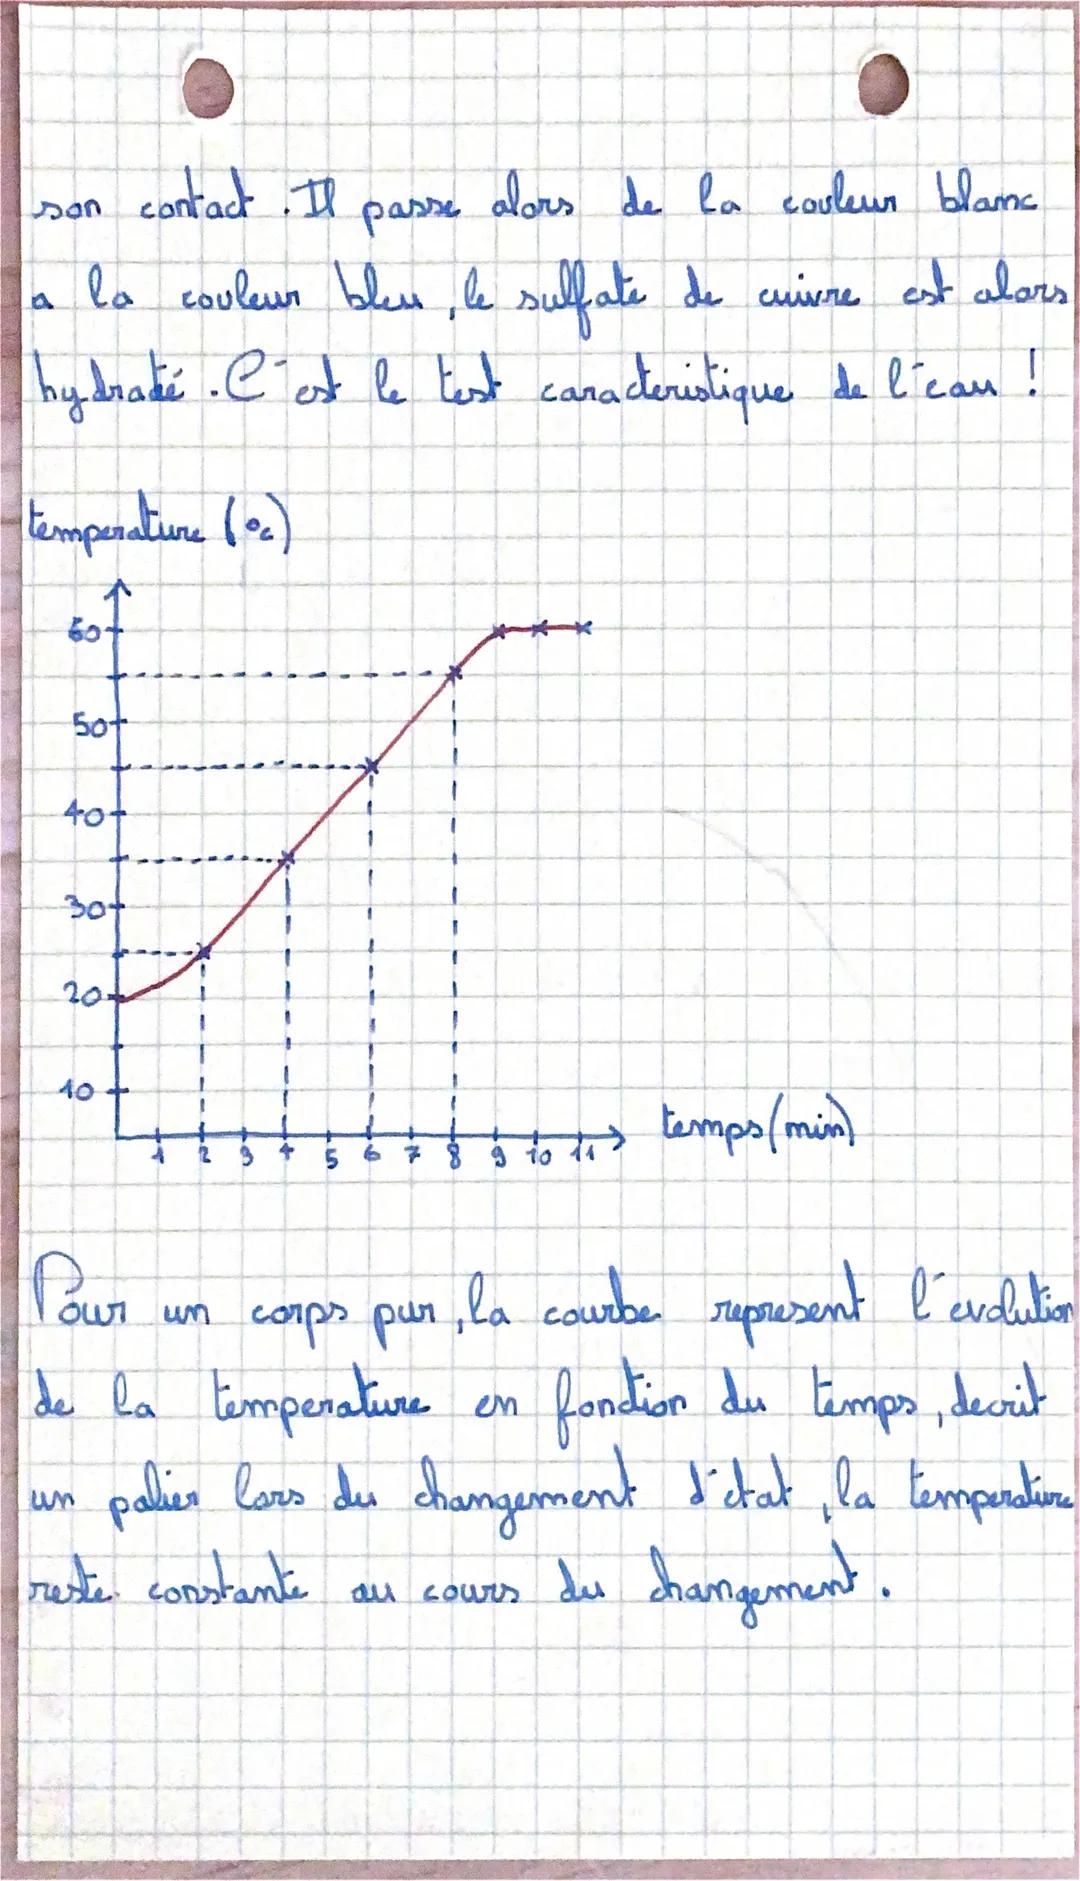 son contact. Il passe alors de la couleur blanc
a la couleur bleu, le sulfate de cuivre est alors
hydraté. C'est le test caracteristique de l'eau !
temperature (°c)
60
50
40
30
20
10
1 2 3 4 5 6 7 8 9 10 11
temps (min)
Pour un corps pur, la courbe represent l'evolution
de la temperature en fonction du temps, decrit
un palier lors du changement d'état, la temperature
reste constante au cours du changement.